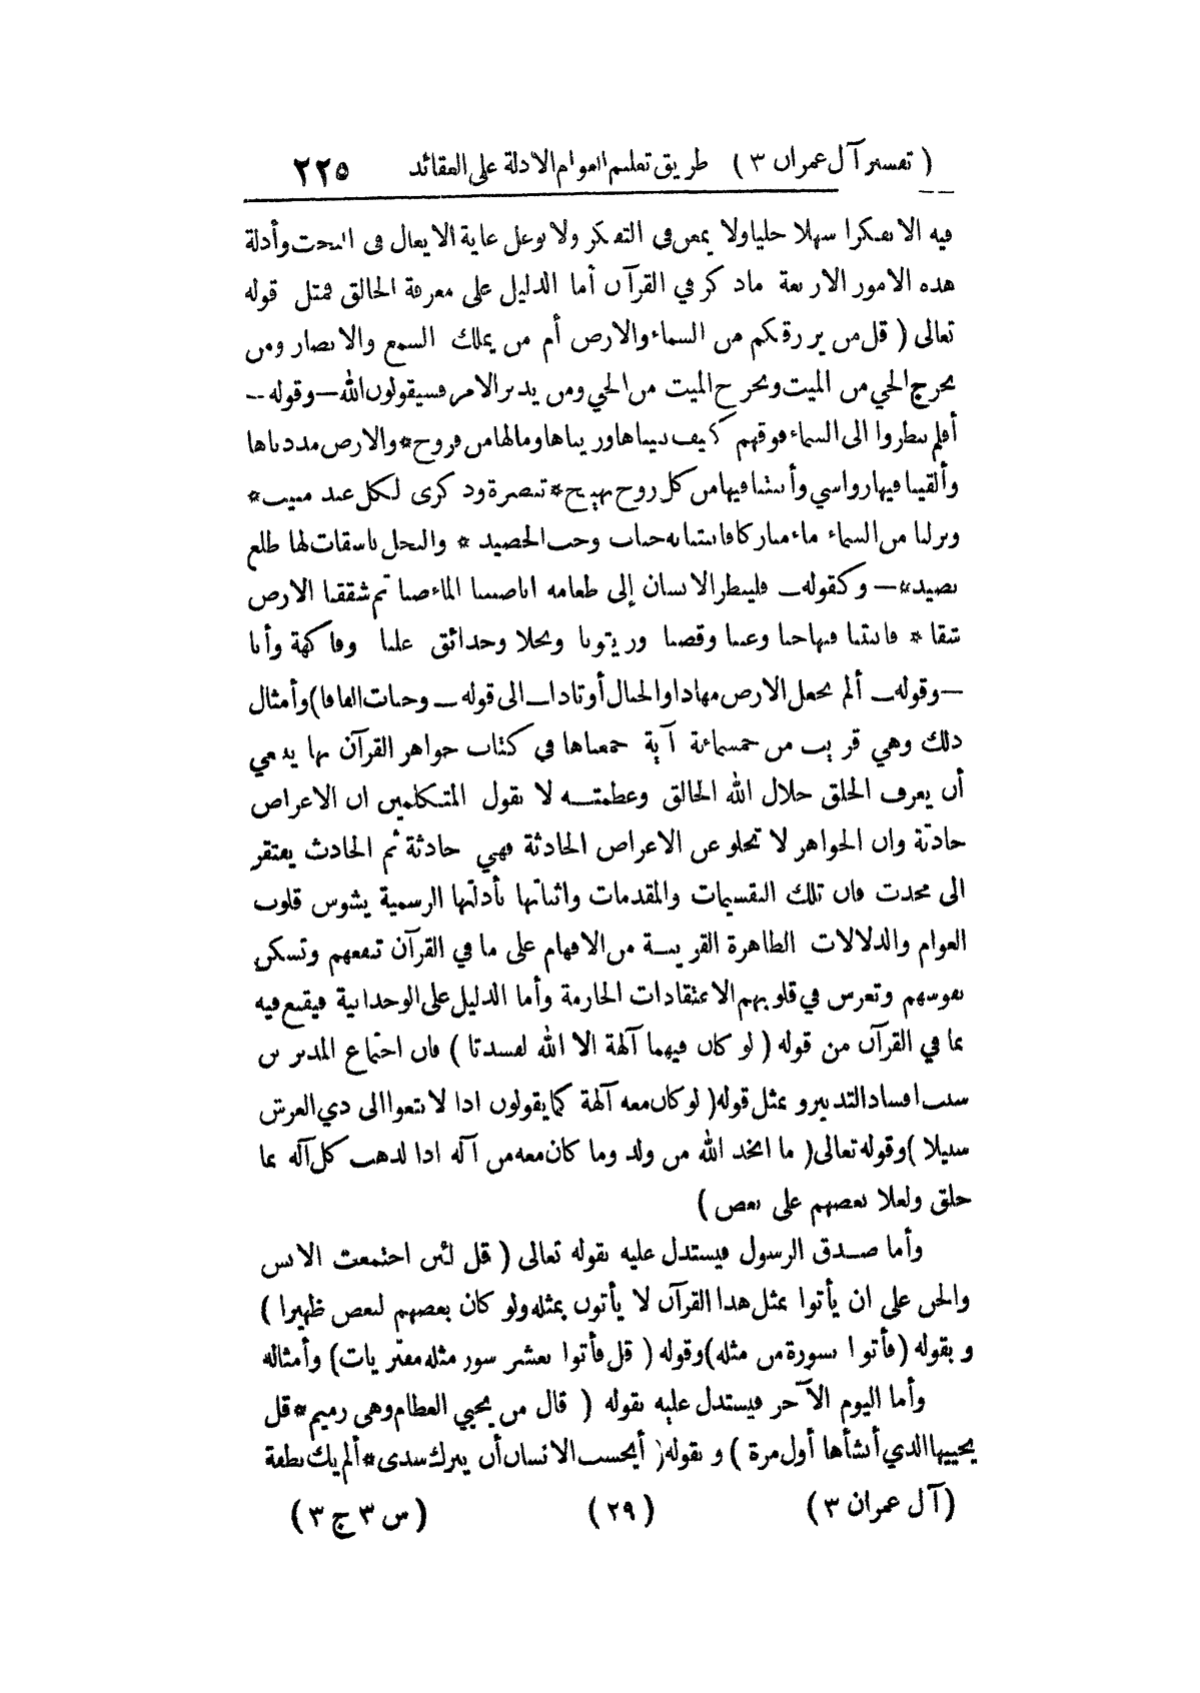 ( تفسير آل عمران ٣ ) طريق تعليم العوام الادلة على العقائد ٢٢٥
فيه الا تفكرا سهلا جليا ولا يمعن في التفكر ولا يوغل غاية الايغال في البحث وأدلة
هذه الامور الاربعة ماذكر في القرآن أما الدليل على معرفة الخالق فمثل قوله
تعالى ( قل من يرزقكم من السماء والارض أم من يملك السمع والابصار ومن
يخرج الحي من الميت ويخرج الميت من الحي ومن يدبر الامر فسيقولون الله — وقوله —
أفلم ينظروا الى السماء فوقهم كيف بنيناها وزيناها ومالها من فروج * والارض مددناها
وألقينا فيها رواسي وأنبتنا فيها من كل زوج بهيج * تبصرة وذكرى لكل عبد منيب *
ونزلنا من السماء ماء مباركا فانبتنا به جنات وحب الحصيد * والنخل باسقات لها طلع
نضيد * — وكقوله — فلينظر الانسان إلى طعامه اناصببنا الماء صبا ثم شققنا الارض
شقا * فانبتنا فيها حبا وعنبا وقضبا وزيتونا ونخلا وحدائق غلبا وفاكهة وأبا
— وقوله — ألم نجعل الارض مهادا والجبال أوتادا — الى قوله — وجنات الفافا ) وأمثال
ذلك وهي قريب من خمسمائة آية جمعناها في كتاب جواهر القرآن بها ينبغي
أن يعرف الخلق جلال الله الخالق وعظمته لا بقول المتكلمين ان الاعراض
حادثة وان الجواهر لا تخلو عن الاعراض الحادثة فهي حادثة ثم الحادث يفتقر
الى محدث فان تلك التقسيمات والمقدمات واثباتها بأدلتها الرسمية يشوش قلوب
العوام والدلالات الظاهرة القريبة من الافهام على ما في القرآن تنفعهم وتسكن
نفوسهم وتغرس في قلوبهم الاعتقادات الجازمة وأما الدليل على الوحدانية فيقنع فيه
بما في القرآن من قوله ( لو كان فيهما آلهة الا الله لفسدتا ) فان اجتماع المدبرين
سبب افساد التدبير و بمثل قوله ( لو كان معه آلهة كما يقولون اذا لابتغوا الى ذي العرش
سبيلا ) وقوله تعالى ( ما اتخذ الله من ولد وما كان معه من آله اذا لذهب كل آله بما
خلق ولعلا بعضهم على بعض )
وأما صدق الرسول فيستدل عليه بقوله تعالى ( قل لئن اجتمعت الانس
والجن على ان يأتوا بمثل هذا القرآن لا يأتون بمثله ولو كان بعضهم لبعض ظهيرا )
و بقوله ( فأتوا بسورة من مثله ) وقوله ( قل فأتوا بعشر سور مثله مفتريات ) وأمثاله
وأما اليوم الآخر فيستدل عليه بقوله ( قال من يحيي العظام وهى رميم * قل
يحييها الذي أنشأها أول مرة ) و بقوله ( أيحسب الانسان أن يترك سدى * ألم يك نطفة
(آل عمران ٣ ) ( ٢٩ ) ( س ٣ ج ٣ )